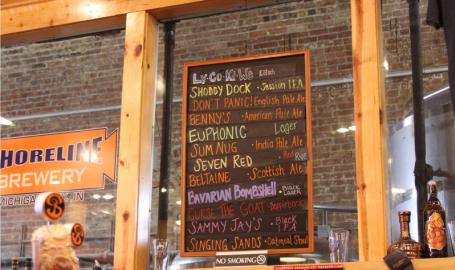 Ly·Co·Ki·We Kölsch
SHODDY DOCK · Session IPA
DON'T PANIC! English Pale Ale
BENNY'S · American Pale Ale
EUPHONIC Lager
SUM NUG · India Pale Ale
SEVEN RED · Red
BELTAINE · Scottish Ale
BAVARIAN BOMBSHELL · Black Lager
CURSE THE GOAT · Doppelbock
SAMMY JAY'S · Black IPA
SINGING SANDS · Oatmeal Stout
NO SMOKING
SHORELINE
BREWERY
MICHIGAN CITY, IN